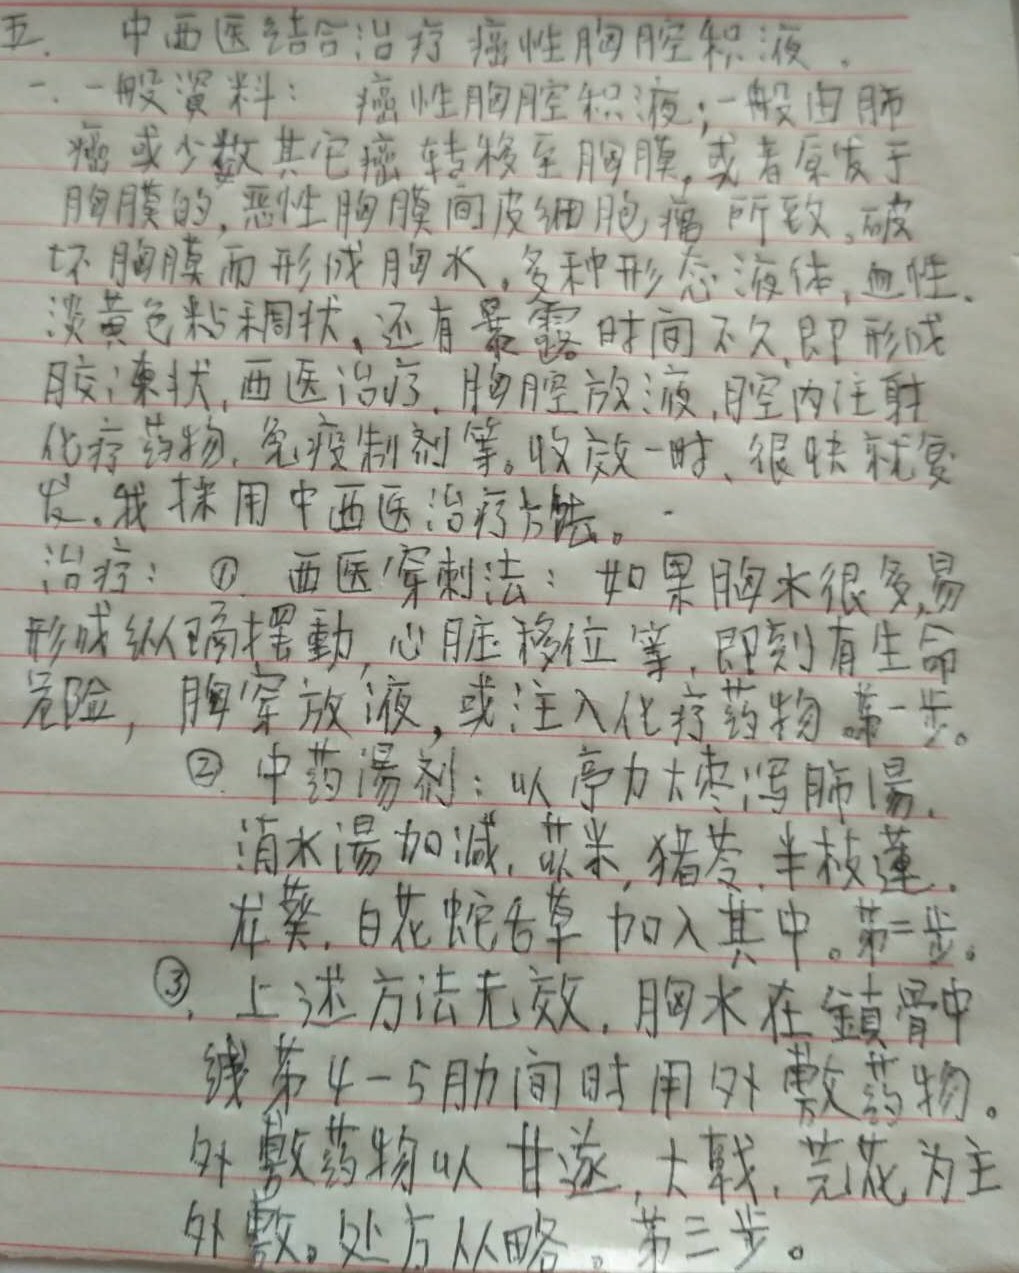 五. 中西医结合治疗癌性胸腔积液.
一.一般資料: 癌性胸腔积液;一般由肺
癌或少数其它癌转移至胸膜,或者原发于
胸膜的,恶性胸膜间皮细胞瘤所致,破
坏胸膜而形成胸水,多种形态液体,血性、
淡黄色粘稠状、还有暴露时间不久,即形成
胶凍状,西医治疗,胸腔放液,腔内注射
化疗药物,免疫制剂等。收效一时、很快就复
发。我採用中西医治疗方法。
治疗: ① 西医穿刺法: 如果胸水很多,易
形成纵隔摆動,心脏移位等,即刻有生命
危险, 胸穿放液,或注入化疗药物。第一步。
② 中药湯剂: 以葶力大枣泻肺湯,
消水湯加减,苡米,猪苓,半枝蓮,
龙葵,白花蛇舌草加入其中。第二步。
③. 上述方法无效,胸水在鎖骨中
线第4-5肋间时用外敷药物。
外敷药物以甘遂,大戟,芫花为主
外敷。处方从略。第三步。